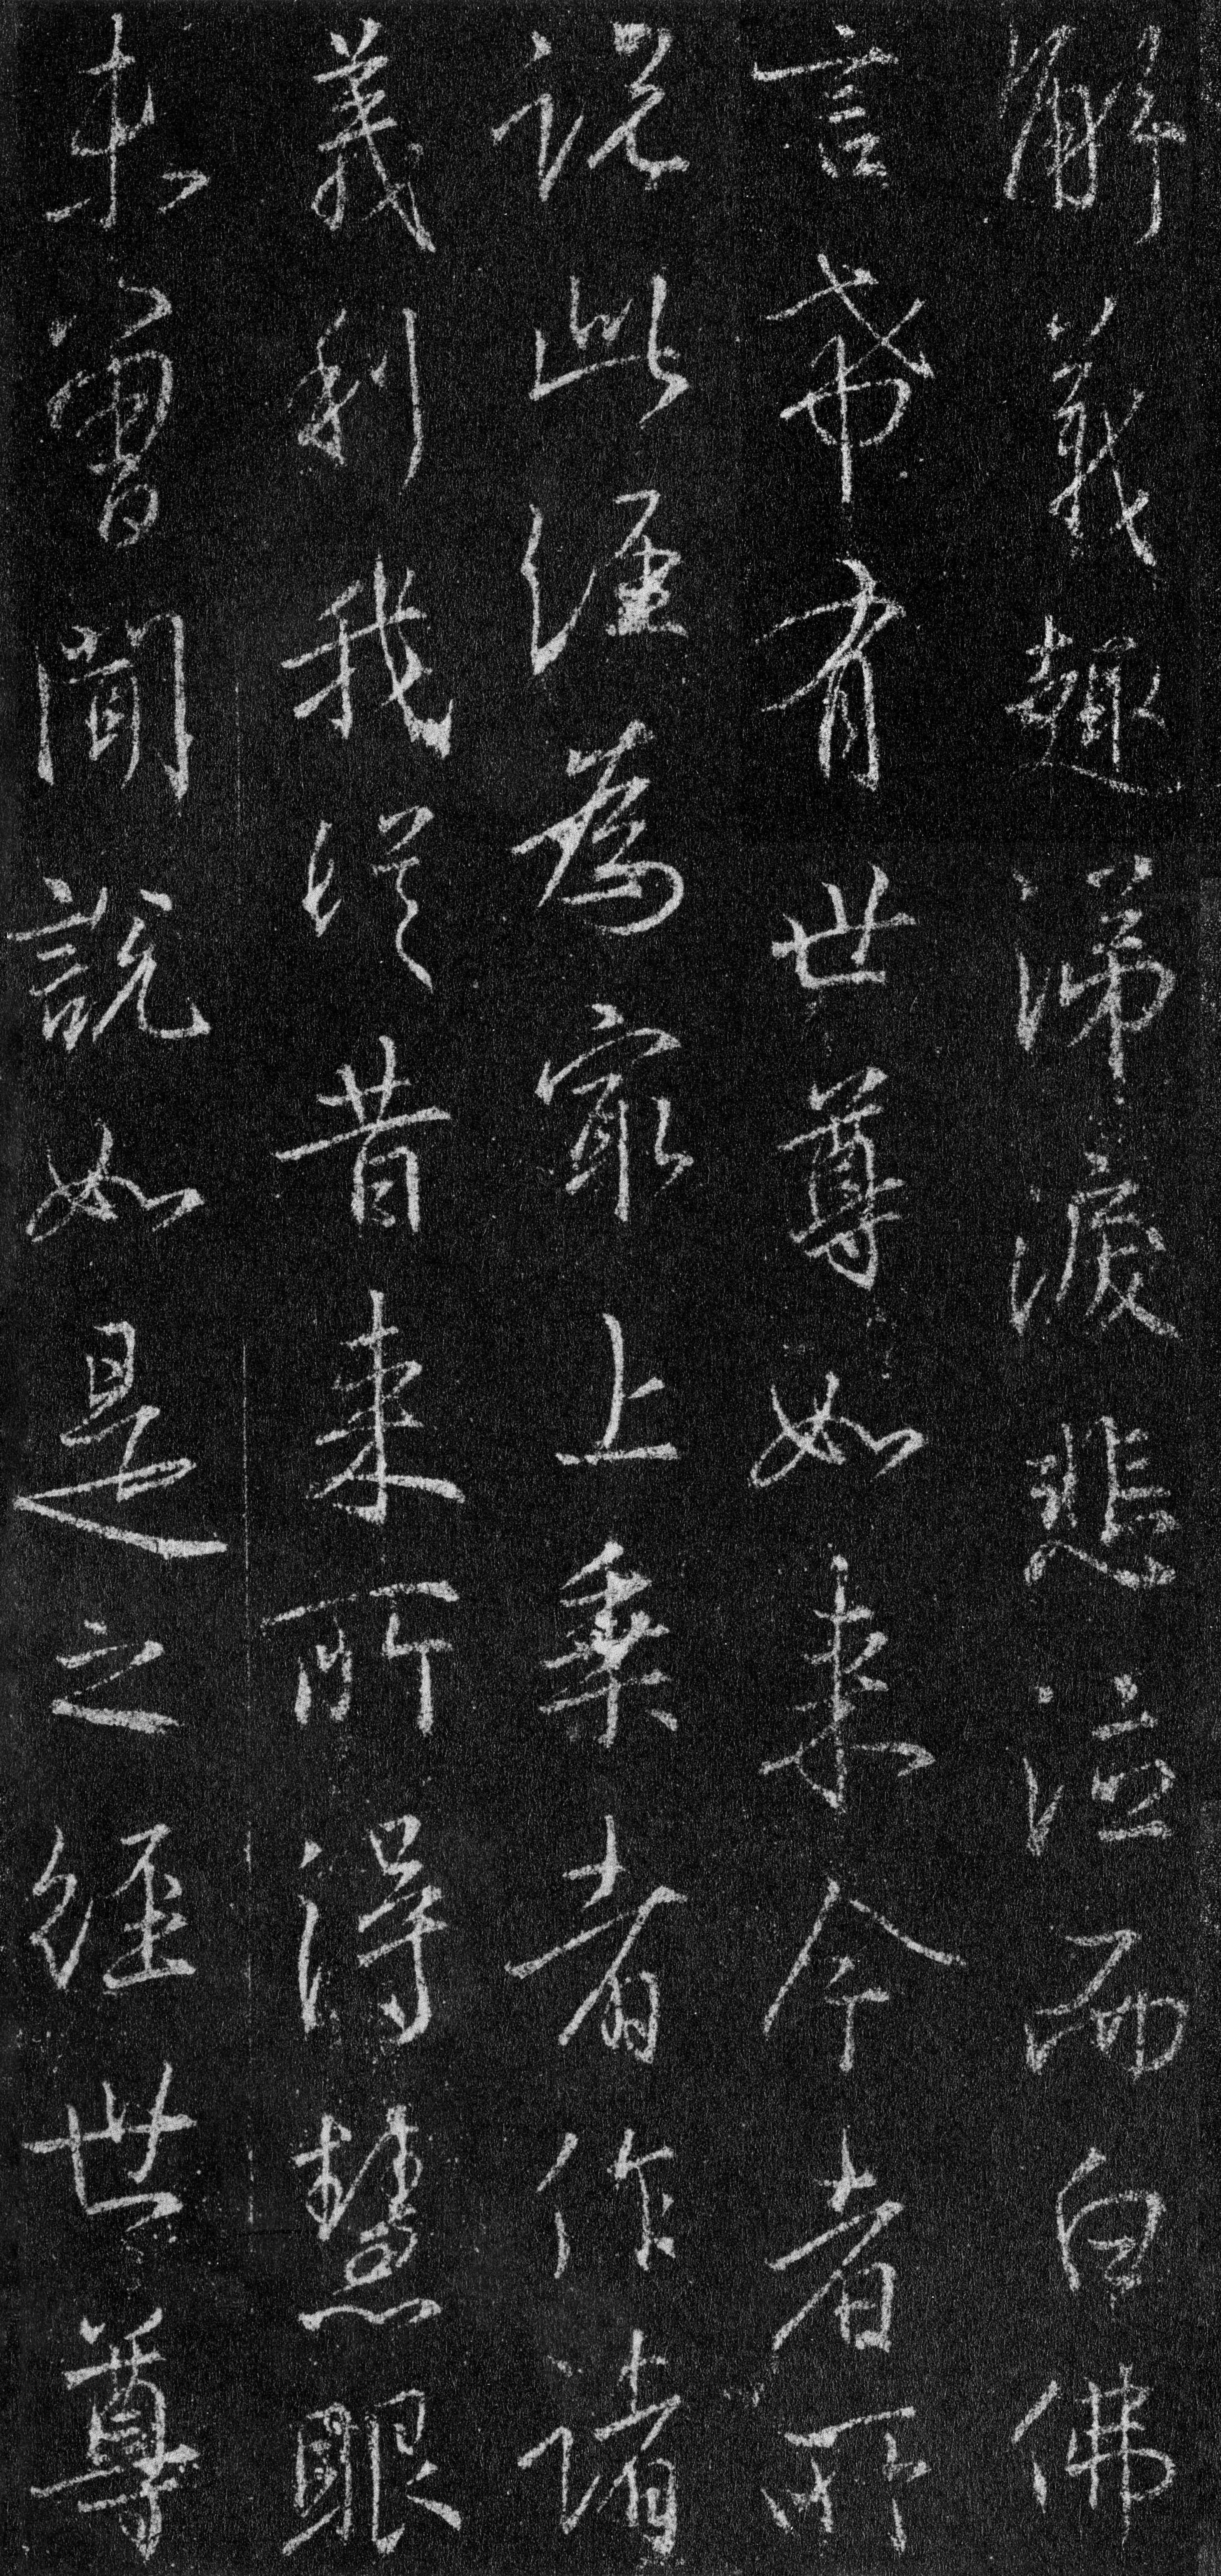 解義趣涕淚悲泣而白佛
言希有世尊如来今者所
說此經為最上乘者作諸
義利我從昔来所得慧眼
未曾聞說如是之經世尊